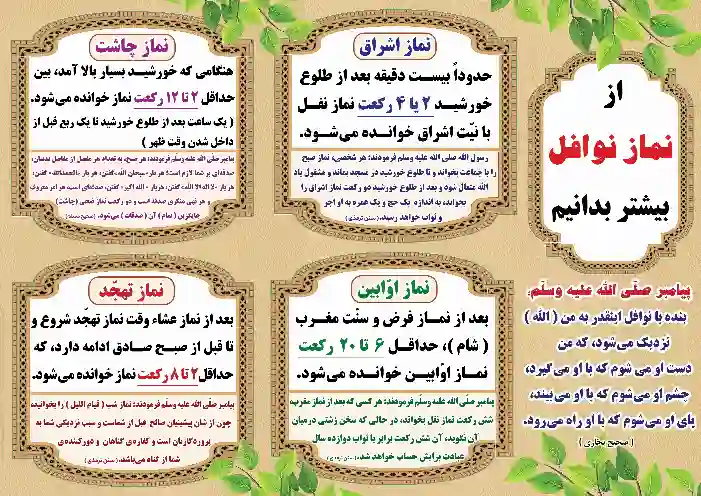 از
نماز نوافل
بیشتر بدانیم
پیامبر صلّی الله علیه وسلّم:
بنده با نوافل اینقدر به من ( الله )
نزدیک می‌شود، که من
دست او می شوم که با او می‌گیرد،
چشم او می‌شوم که با او می‌بیند،
پای او می‌شوم که با او راه می‌رود.
( صحیح بخاری )
نماز اشراق
حدوداً بیست دقیقه بعد از طلوع
خورشید ۲ یا ۴ رکعت نماز نفل
با نیّت اشراق خوانده می‌شود.
رسول الله صلی الله علیه وسلم فرمودند: هر شخصی، نماز صبح
را با جماعت بخواند و تا طلوع خورشید در مسجد بماند و مشغول یاد
الله متعال شود و بعد از طلوع خورشید دو رکعت نماز اشراق را
بخواند، به اندازه یک حج و یک عمره به او اجر
و ثواب خواهد رسید. (سنن ترمذی)
نماز چاشت
هنگامی که خورشید بسیار بالا آمد، بین
حداقل ۲ تا ۱۲ رکعت نماز خوانده می‌شود.
( یک ساعت بعد از طلوع خورشید تا یک ربع قبل از
داخل شدن وقت ظهر )
پیامبر صلّی الله علیه وسلم فرمودند: هر صبح، به تعداد هر مفصل از مفاصل بدنتان،
صدقه‌ای بر شما لازم است؛ هر بار «سبحان الله» گفتن، هر بار «الحمدلله» گفتن،
هر بار «لا اله الا الله» گفتن، هر بار «الله اکبر» گفتن، صدقه‌ای است، هر امر معروف
و هر نهی منکری صدقه است و دو رکعت نماز ضحی (چاشت)
جایگزین (تمام) آن ( صدقات ) می‌شود. (صحیح مسلم)
نماز اوّابین
بعد از نماز فرض و سنّت مغرب
( شام )، حداقل ۶ تا ۲۰ رکعت
نماز اوّابین خوانده می‌شود.
پیامبر صلّی الله علیه وسلّم فرمودند: هر کسی که بعد از نماز مغرب،
شش رکعت نماز نفل بخواند، در حالی که سخن زشتی در میان
آن نگوید، آن شش رکعت برابر با ثواب دوازده سال
عبادت برایش حساب خواهد شد. (سنن ترمذی)
نماز تهجّد
بعد از نماز عشاء وقت نماز تهجّد شروع و
تا قبل از صبح صادق ادامه دارد، که
حداقل ۲ تا ۸ رکعت نماز خوانده می‌شود.
پیامبر صلّی الله علیه وسلم فرمودند: نماز شب ( قیام اللیل ) را بخوانید
چون از شان پیشینیان صالح قبل از شماست و سبب نزدیکی شما به
پروردگارتان است و کفاره‌ی گناهان و دورکننده‌ی
شما از گناه می‌باشد. (سنن ترمذی)